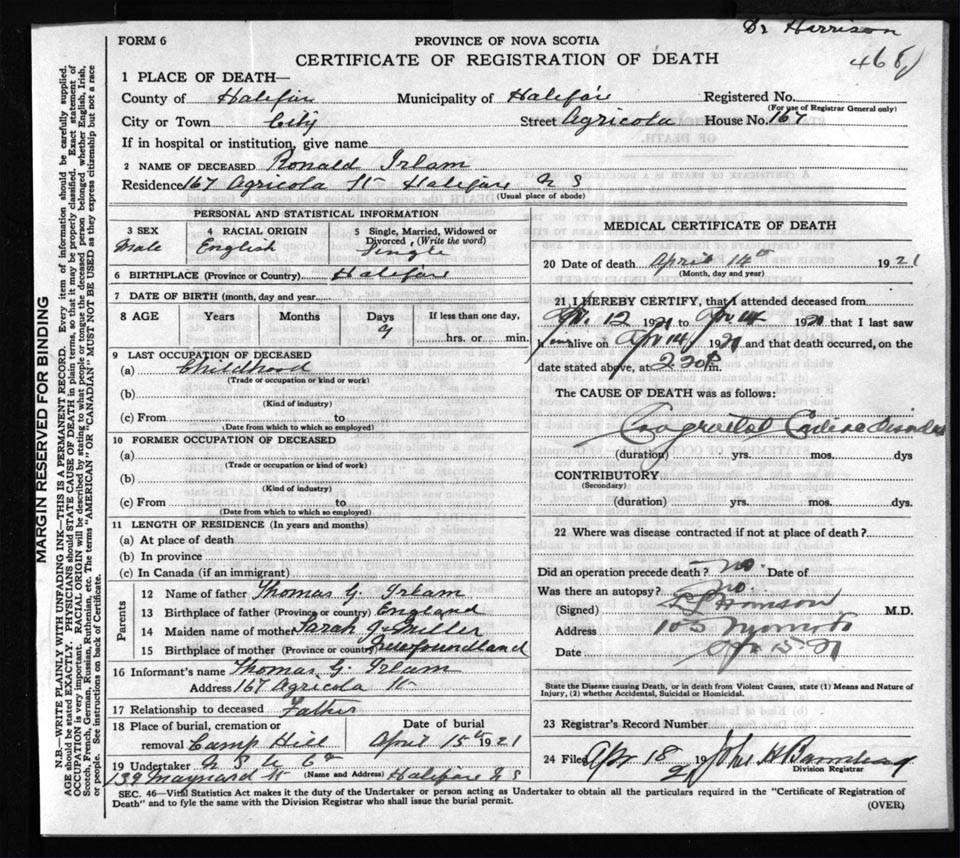 Dr Harrison
468
FORM 6
PROVINCE OF NOVA SCOTIA
CERTIFICATE OF REGISTRATION OF DEATH
1 PLACE OF DEATH—
County of Halifax Municipality of Halifax Registered No.
(For use of Registrar General only)
City or Town City Street Agricola House No. 167
If in hospital or institution, give name
2 NAME OF DECEASED Ronald Irlam
Residence 167 Agricola St Halifax N S
(Usual place of abode)
PERSONAL AND STATISTICAL INFORMATION
3 SEX 4 RACIAL ORIGIN 5 Single, Married, Widowed or Divorced, (Write the word)
Male English Single
6 BIRTHPLACE (Province or Country) Halifax
7 DATE OF BIRTH (month, day and year)
8 AGE Years Months Days If less than one day,
hrs. or min.
9 LAST OCCUPATION OF DECEASED
(a) Childhood
(Trade or occupation or kind or work)
(b)
(Kind of industry)
(c) From to
(Date from which to which so employed)
10 FORMER OCCUPATION OF DECEASED
(a)
(Trade or occupation or kind of work)
(b)
(Kind of industry)
(c) From to
(Date from which to which so employed)
11 LENGTH OF RESIDENCE (In years and months)
(a) At place of death
(b) In province
(c) In Canada (if an immigrant)
Parents
12 Name of father Thomas G. Irlam
13 Birthplace of father (Province or country) England
14 Maiden name of mother Sarah J. Miller
15 Birthplace of mother (Province or country) Newfoundland
16 Informant's name Thomas G. Irlam
Address 167 Agricola St
17 Relationship to deceased Father
18 Place of burial, cremation or Date of burial
removal Camp Hill April 15th 1921
19 Undertaker N S U Co
139 Maynard St (Name and Address) Halifax N S
MEDICAL CERTIFICATE OF DEATH
20 Date of death April 14th 1921
(Month, day and year)
21 I HEREBY CERTIFY, that I attended deceased from
Apr. 12 1921 to Apr 14 1921 that I last saw
alive on Apr 14 1921 and that death occurred, on the
date stated above, at 2 30 P m.
The CAUSE OF DEATH was as follows:
Congenital Cardiac disorder
(duration) yrs. mos. dys
CONTRIBUTORY
(Secondary)
(duration) yrs. mos. dys.
22 Where was disease contracted if not at place of death?
Did an operation precede death? no Date of
Was there an autopsy? no
(Signed) M.D.
Address 105
Date Apr 15 21
State the Disease causing Death, or in death from Violent Causes, state (1) Means and Nature of
Injury, (2) whether Accidental, Suicidal or Homicidal.
23 Registrar's Record Number
24 Filed Apr 18 1921 John H
Division Registrar
SEC. 46—Vital Statistics Act makes it the duty of the Undertaker or person acting as Undertaker to obtain all the particulars required in the "Certificate of Registration of
Death" and to fyle the same with the Division Registrar who shall issue the burial permit.
(OVER)
MARGIN RESERVED FOR BINDING
N.B.—WRITE PLAINLY WITH UNFADING INK—THIS IS A PERMANENT RECORD. Every item of information should be carefully supplied.
AGE should be stated EXACTLY. PHYSICIANS should STATE CAUSE OF DEATH in plain terms, so that it may be properly classified. Exact statement of
OCCUPATION is very important. RACIAL ORIGIN will be described by stating to what people or tongue the deceased person belonged, whether English, Irish,
Scotch, French, German, Russian, Ruthenian, etc. The terms "AMERICAN" OR "CANADIAN" MUST NOT BE USED as they express citizenship but not a race
or people. See instructions on back of Certificate.